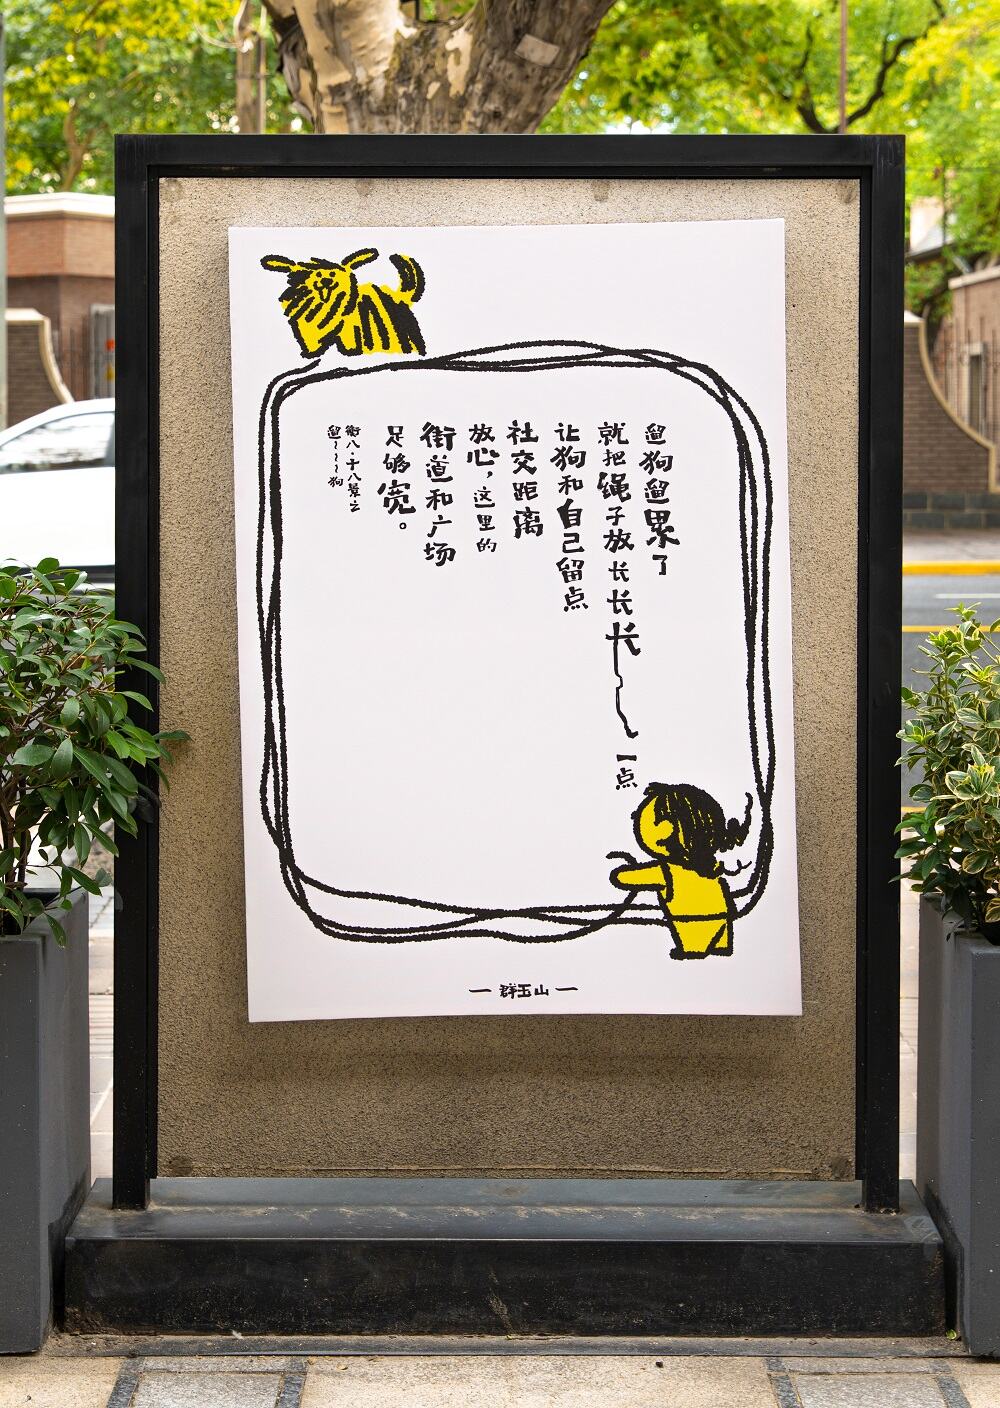 遛狗遛累了
就把绳子放长长长一点
让狗和自己留点
社交距离
放心，这里的
街道和广场
足够宽。
街八·十八景之
遛~~~~狗
— 群玉山 —